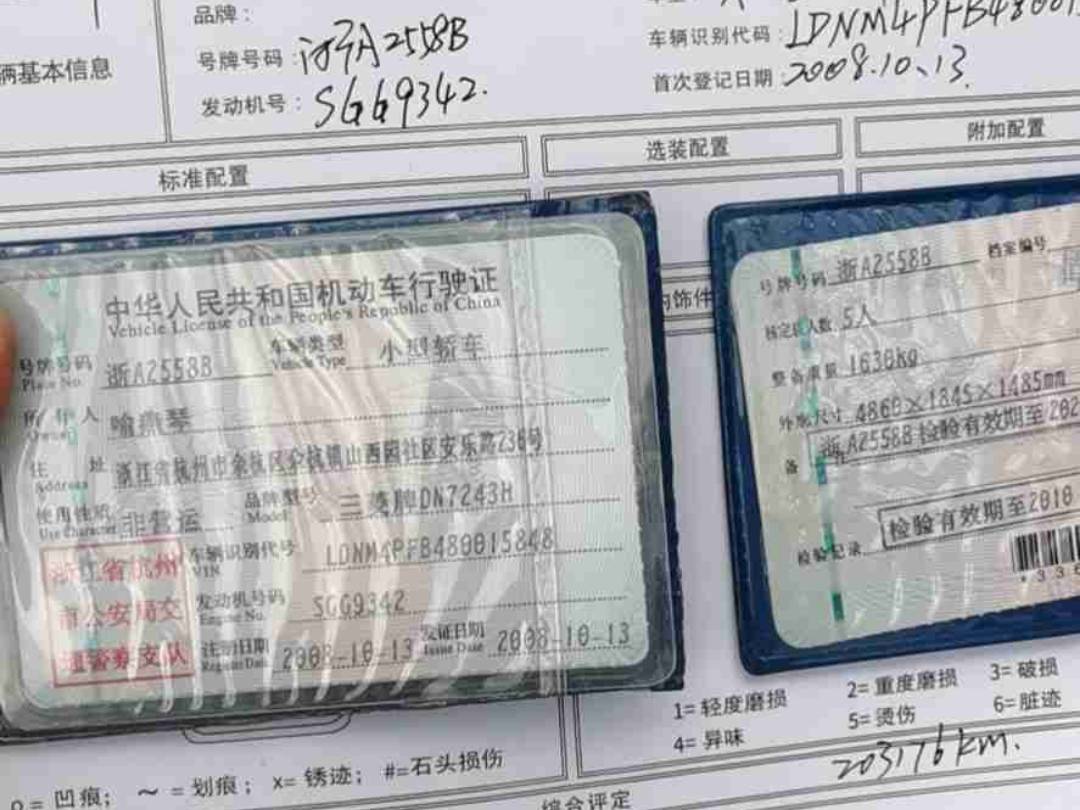 品牌:
号牌号码: 浙A2558B
车辆识别代码: LDNM4PFB48001
辆基本信息
首次登记日期: 2008.10.13
发动机号: SGG9342.
标准配置
选装配置
附加配置
内饰件
中华人民共和国机动车行驶证
Vehicle License of the People's Republic of China
号牌号码 浙A2558B 车辆类型 小型轿车
Plate No. Vehicle Type
所有人 喻燕琴
Owner
住址 浙江省杭州市余杭区余杭镇山西园社区安乐路236号
Address
使用性质 非营运 品牌型号 三菱牌DN7243H
Use Character Model
浙江省杭州
市公安局交
通警察支队
车辆识别代号 LDNM4PFB480015848
VIN
发动机号码 SGG9342
Engine No.
注册日期 2008-10-13 发证日期 2008-10-13
Register Date Issue Date
号牌号码 浙A2558B 档案编号
核定载人数 5人
整备质量 1630kg
外廓尺寸 4860×1845×1485mm
备 浙A2558B 检验有效期至202
检验记录 检验有效期至2010
*336
1=轻度磨损 2=重度磨损 3=破损
4=异味 5=烫伤 6=脏迹
203176km.
o=凹痕; ~=划痕; x=锈迹; #=石头损伤
综合评定